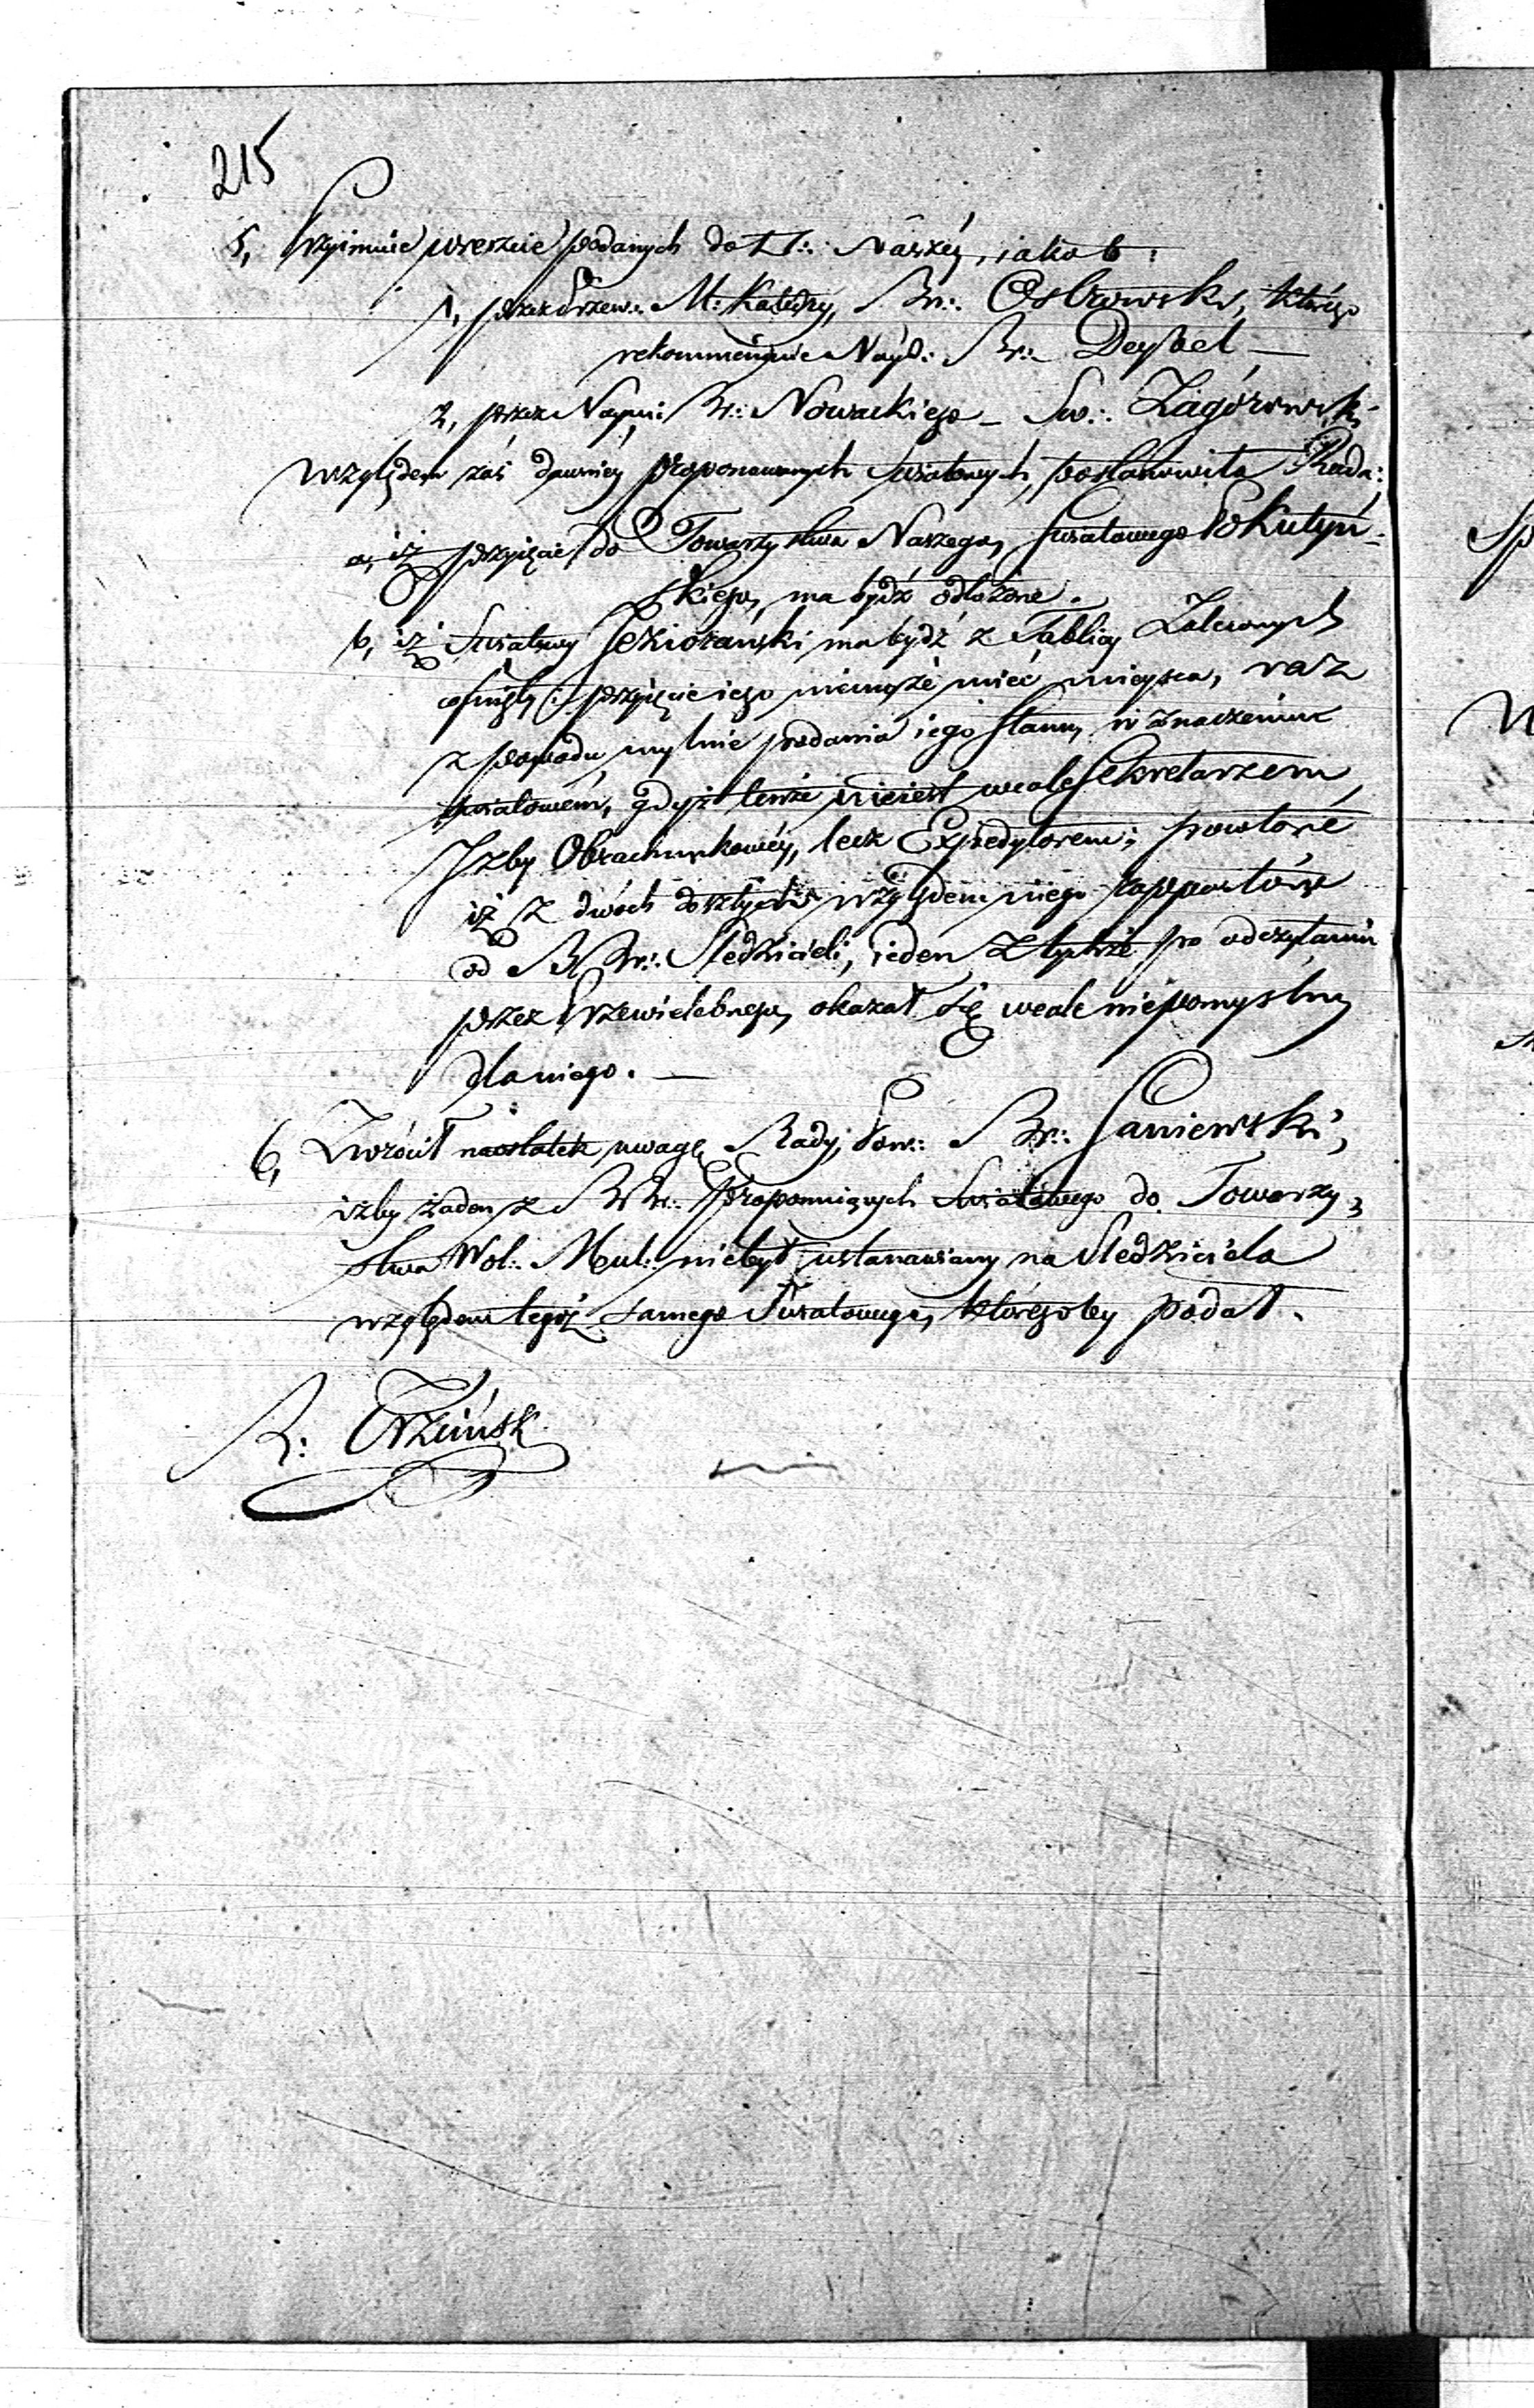 215
5, Przyimuie wreszcie podanych do □∴ Naszéy, iako to:
1, przez Przew∴ M: Katedry, Br∴ Ostrowski, którego
rekommenduie Nayd: Br∴ Deybel —
2, przez Nayu: Br∴ Nowackiego — Sw∴ Zagórowski
Względem zaś dawniey proponowanych światowych, postanowiła Rada:
a, iż przyięcie do Towarzystwa Naszego, światowego Pokutyń-
skiego, ma bydź odłożone.
b, iż Swiatowy Jeziorański ma bydź z Tablicy Zaleconych
cofnięty: przyięcie iego niemoże mieć mieysca, raz
z powodu mylnie podania iego stanu, w znaczeniu
światowém, gdyż tenże nieiest wcale Sekretarzem
Izby Obrachunkowéy, lecz Expedytorem; powtóré
iż z dwóch doszłych względem niego rapportów
od BBr∴ Sledzicieli, ieden z tychże po odczytaniu
przez Przewielebnego, okazał się wcale niepomyslny
dla niego. —
6, Zwrócił naostatek uwagę Rady, Pow∴ Br∴ Janiewski,
iżby żaden z BBr∴ Proponuiących Swiatowego do Towarzy-
stwa Wol∴ Mul∴ niebył ustanawiany na Sledziciela
względem tegoż samego Swiatowego, któregoby podał.